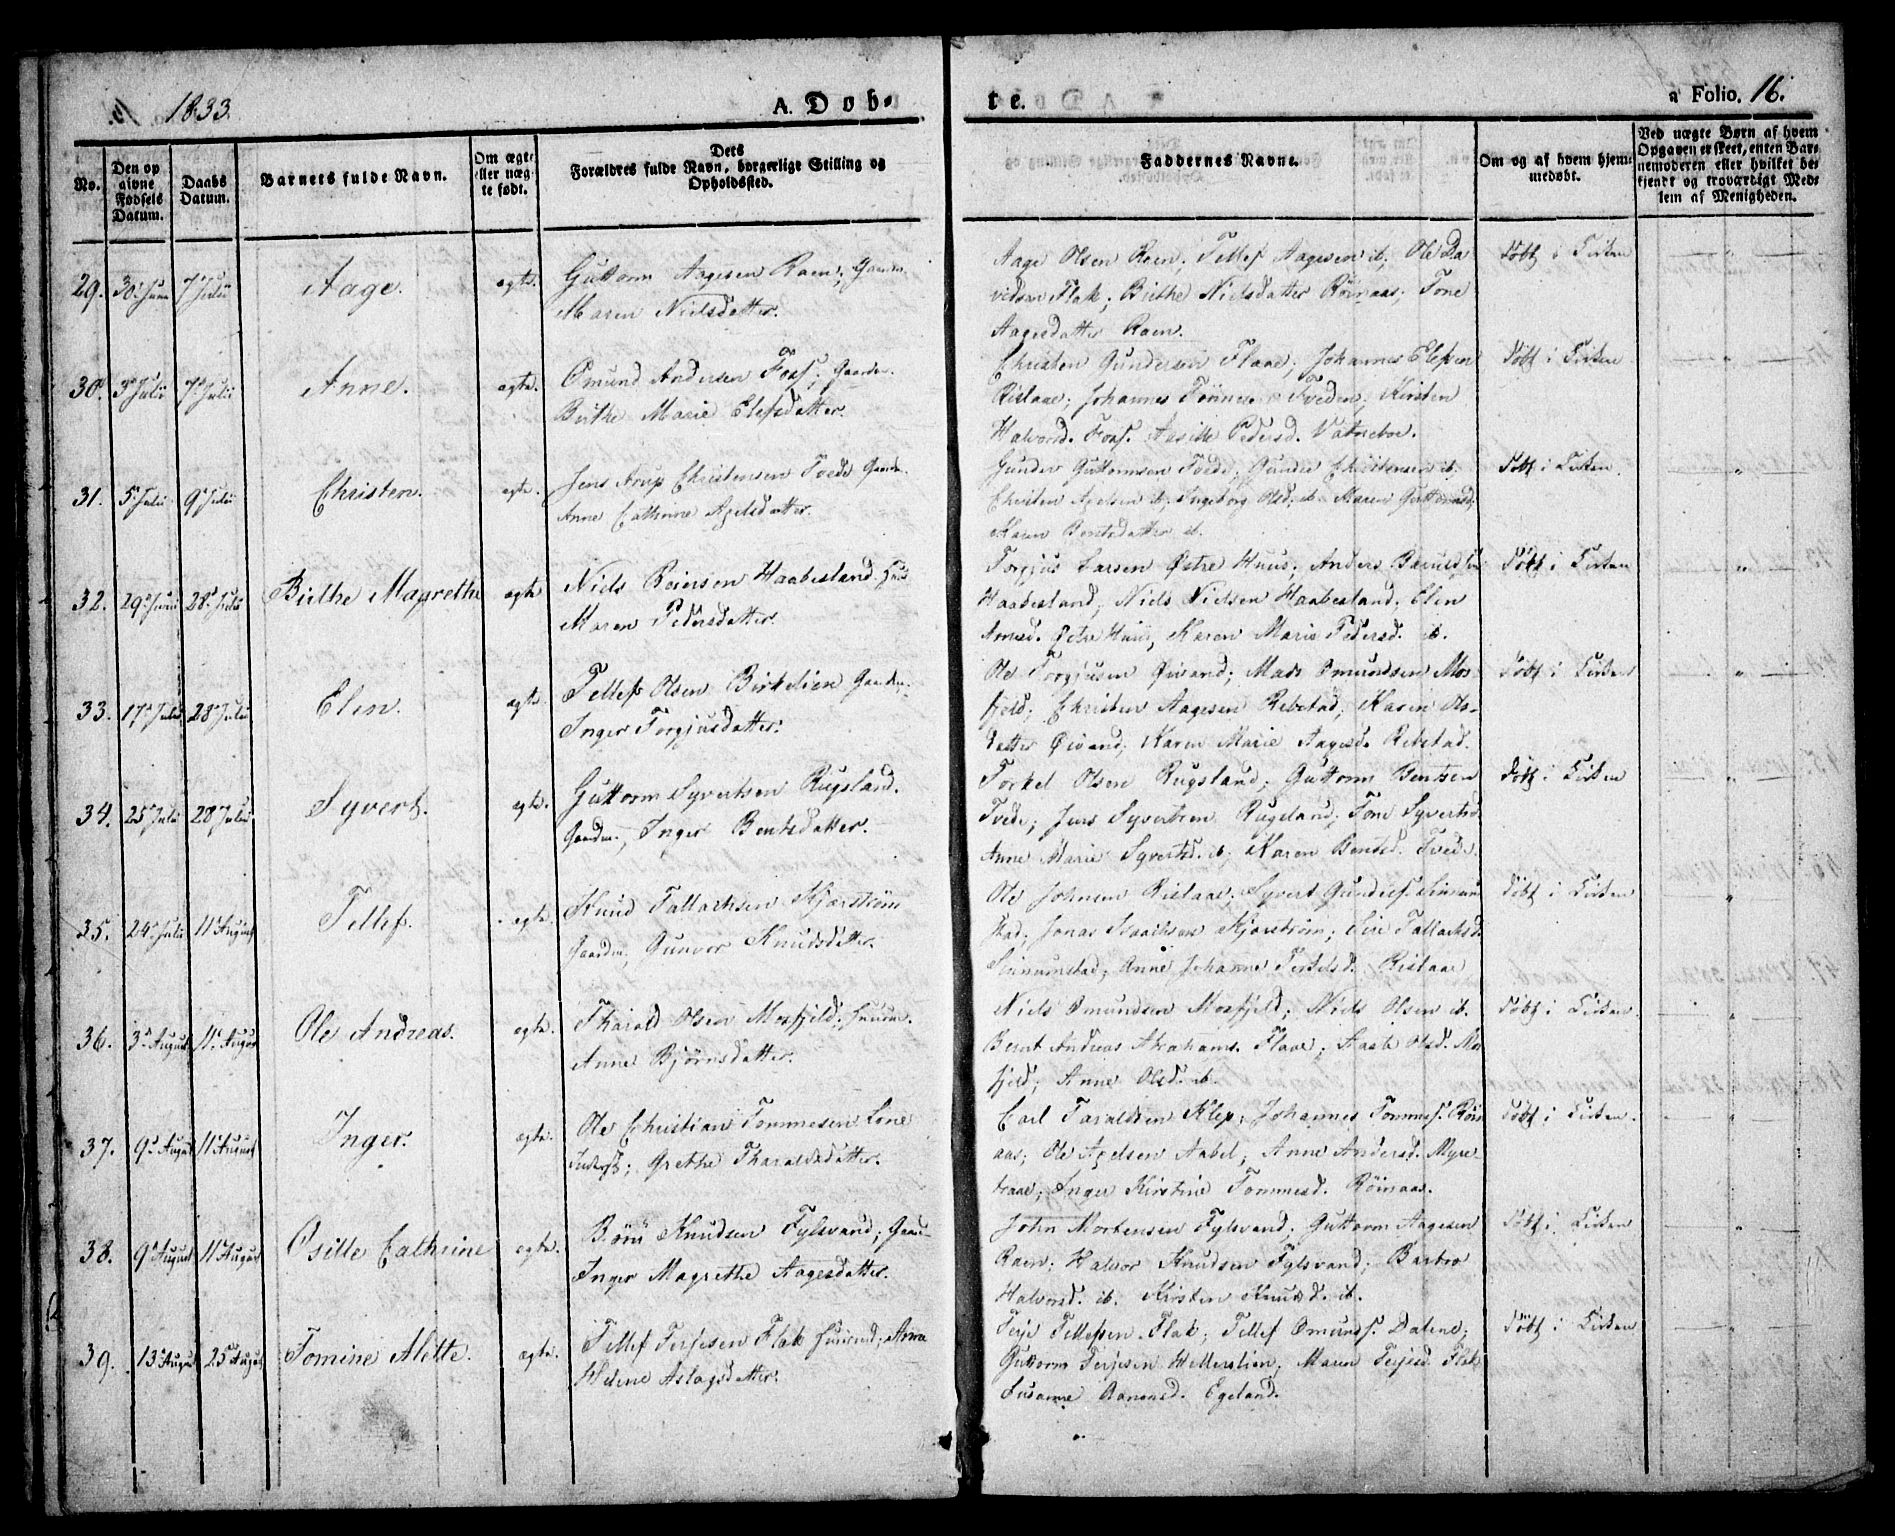 1833.
A. Døb-
te.
a Folio. 16.
No.
Den op
givne
Fødsels
Datum.
Daabs
Datum.
Barnets fulde Navn.
Om ægte
eller uæg-
te født.
Dets
Forældres fulde Navn, borgerlige Stilling og
Opholdssted.
Faddernes Navne.
Om og af hvem hjem-
medøbt.
Ved uægte Børn af hvem
Opgaven er skeet, enten Bar-
nemoderen eller hvilket be-
kjendt og troværdigt Med-
lem af Menigheden.
29. 30. Juni 7 Juli Aage. ægte. Guttorm Aagesen Raen; Gaardm.
Maren Nielsdatter.
Aage Olsen Raen; Tellef Aagesen ib; Ole Da-
vidsen Flak; Birthe Nielsdatter Röinaas; Tone
Aagesdatter Raen.
Döbt i Kirken
30. 3 Juli 7 Juli Anne. ægte. Omund Andersen Foss; Gaardm.
Birthe Marie Elefsdatter.
Christen Gundersen Flaae; Johannes Elefsen
Rislaae; Johannes Tveden; Kirsten
Halvorsd. Foss. Aasille Pedersd. Vatneboe.
Döbt i Kirken
31. 5 Juli 9 Juli Christen. ægte. Jens Arup Christensen Tvede Gaardm.
Anne Cathrine Axelsdatter.
Gunder Guttormsen Tvede; Gunder Christensen ib.
Christen Axelsen ib; Ingeborg Olsd. ib. Maren Guttormsd.
Karen Bentsdatter ib.
Döbt i Kirken.
32. 29 Juni 28 Juli Birthe Magrethe ægte Niels Reiersen Haabesland. Huus
Maren Pedersdatter.
Torgjus Larsen Østre Huus; Anders
Haabesland; Niels Nielsen Haabesland; Elen
Arnesd. Østre Huus, Karen Marie Pedersd. ib.
Döbt i Kirken
33. 17 Juli 28 Juli Elen. ægte. Tellef Olsen Birkelien Gaardm.;
Inger Torgjusdatter.
Ole Torgjusen Öivand; Mads Omundsen Mos-
fjeld; Christen Aagesen Rebstad; Karen Ols-
datter Öivand; Karen Marie Aagesd. Rebstad.
Döbt i Kirken
34. 25 Juli 28 Juli Syvert. ægte. Guttorm Syvertsen Rugsland.
Gaardm., Inger Bentsdatter.
Torkel Olsen Rugsland; Guttorm Bentsen
Tvede; Jens Syvertsen Rugsland; Tone Syvertsd.
Anne Marie Syvertsd. ib; Karen Bentsd. Tvede.
Döbt i Kirken
35. 24 Juli 11 August Tellef. ægte. Knud Tallachsen Kjærström
Gaardm., Gunvor Knudsdatter.
Ole Johnsen Rislaae; Syvert Gunders. Sinnum-
stad; Jonas Isaachsen Kjærström; Siri Tallachsd.
Sinnumstad; Anne Johanne Terkelsd. Rislaae
Döbt i Kirken
36. 3 August 11 August Ole Andreas. ægte. Tharald Olsen Mosfjeld; Huusm.
Anne Björnsdatter.
Niels Omundsen Mosfjeld; Niels Olsen ib.
Bernt Andreas Abrahams. Flaae; Aasle Olsd. Mos-
fjeld; Anne Olsd. ib.
Döbt i Kirken.
37. 9 August 11 August Inger. ægte. Ole Christian Tommesen Lone
Inderst; Grethe Tharaldsdatter.
Carl Taraldsen Klep; Johannes Tommes. Röin-
aas; Ole Axelsen Aabel; Anne Andersd. Myre-
braae; Inger Kirstine Tommesd. Röinaas.
Döbt i Kirken.
38. 9 August 11 August Osille Cathrine ægte. Börü Knudsen Fylsvand; Gaard-
Inger Magrethe Aagesdatter.
John Mortensen Fylsvand; Guttorm Aagesen
Raen; Halvor Knudsen Fylsvand; Barbro
Halvorsd. ib. Kirsten Knudsd. ib.
Döbt i Kirken
39. 13 August 25 August Tomine Alette. ægte. Tellef Terjesen Flak Huusmd; Anne
Helene Aslagsdatter.
Terje Tellefsen Flak; Tellef Omunds. Dalene;
Guttorm Terjesen Hellerslien; Maren Terjesd. Flak
Susanne Aanensd. Egeland.
Döbt i Kirken